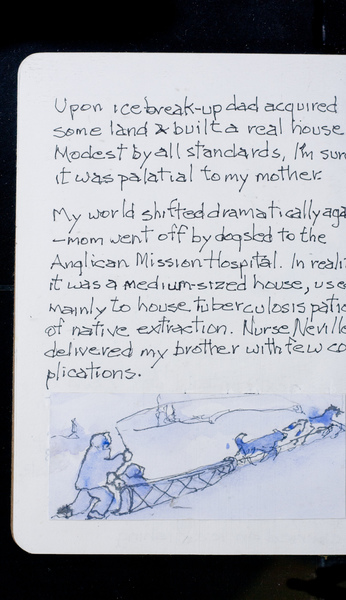 Upon icebreak-up dad acquired
some land & built a real house
Modest by all standards, I'm sur
it was palatial to my mother.
My world shifted dramatically aga
-mom went off by dogsled to the
Anglican Mission Hospital. In reali
it was a medium-sized house, use
mainly to house tuberculosis patie
of native extraction. Nurse Neville
delivered my brother with few co
plications.